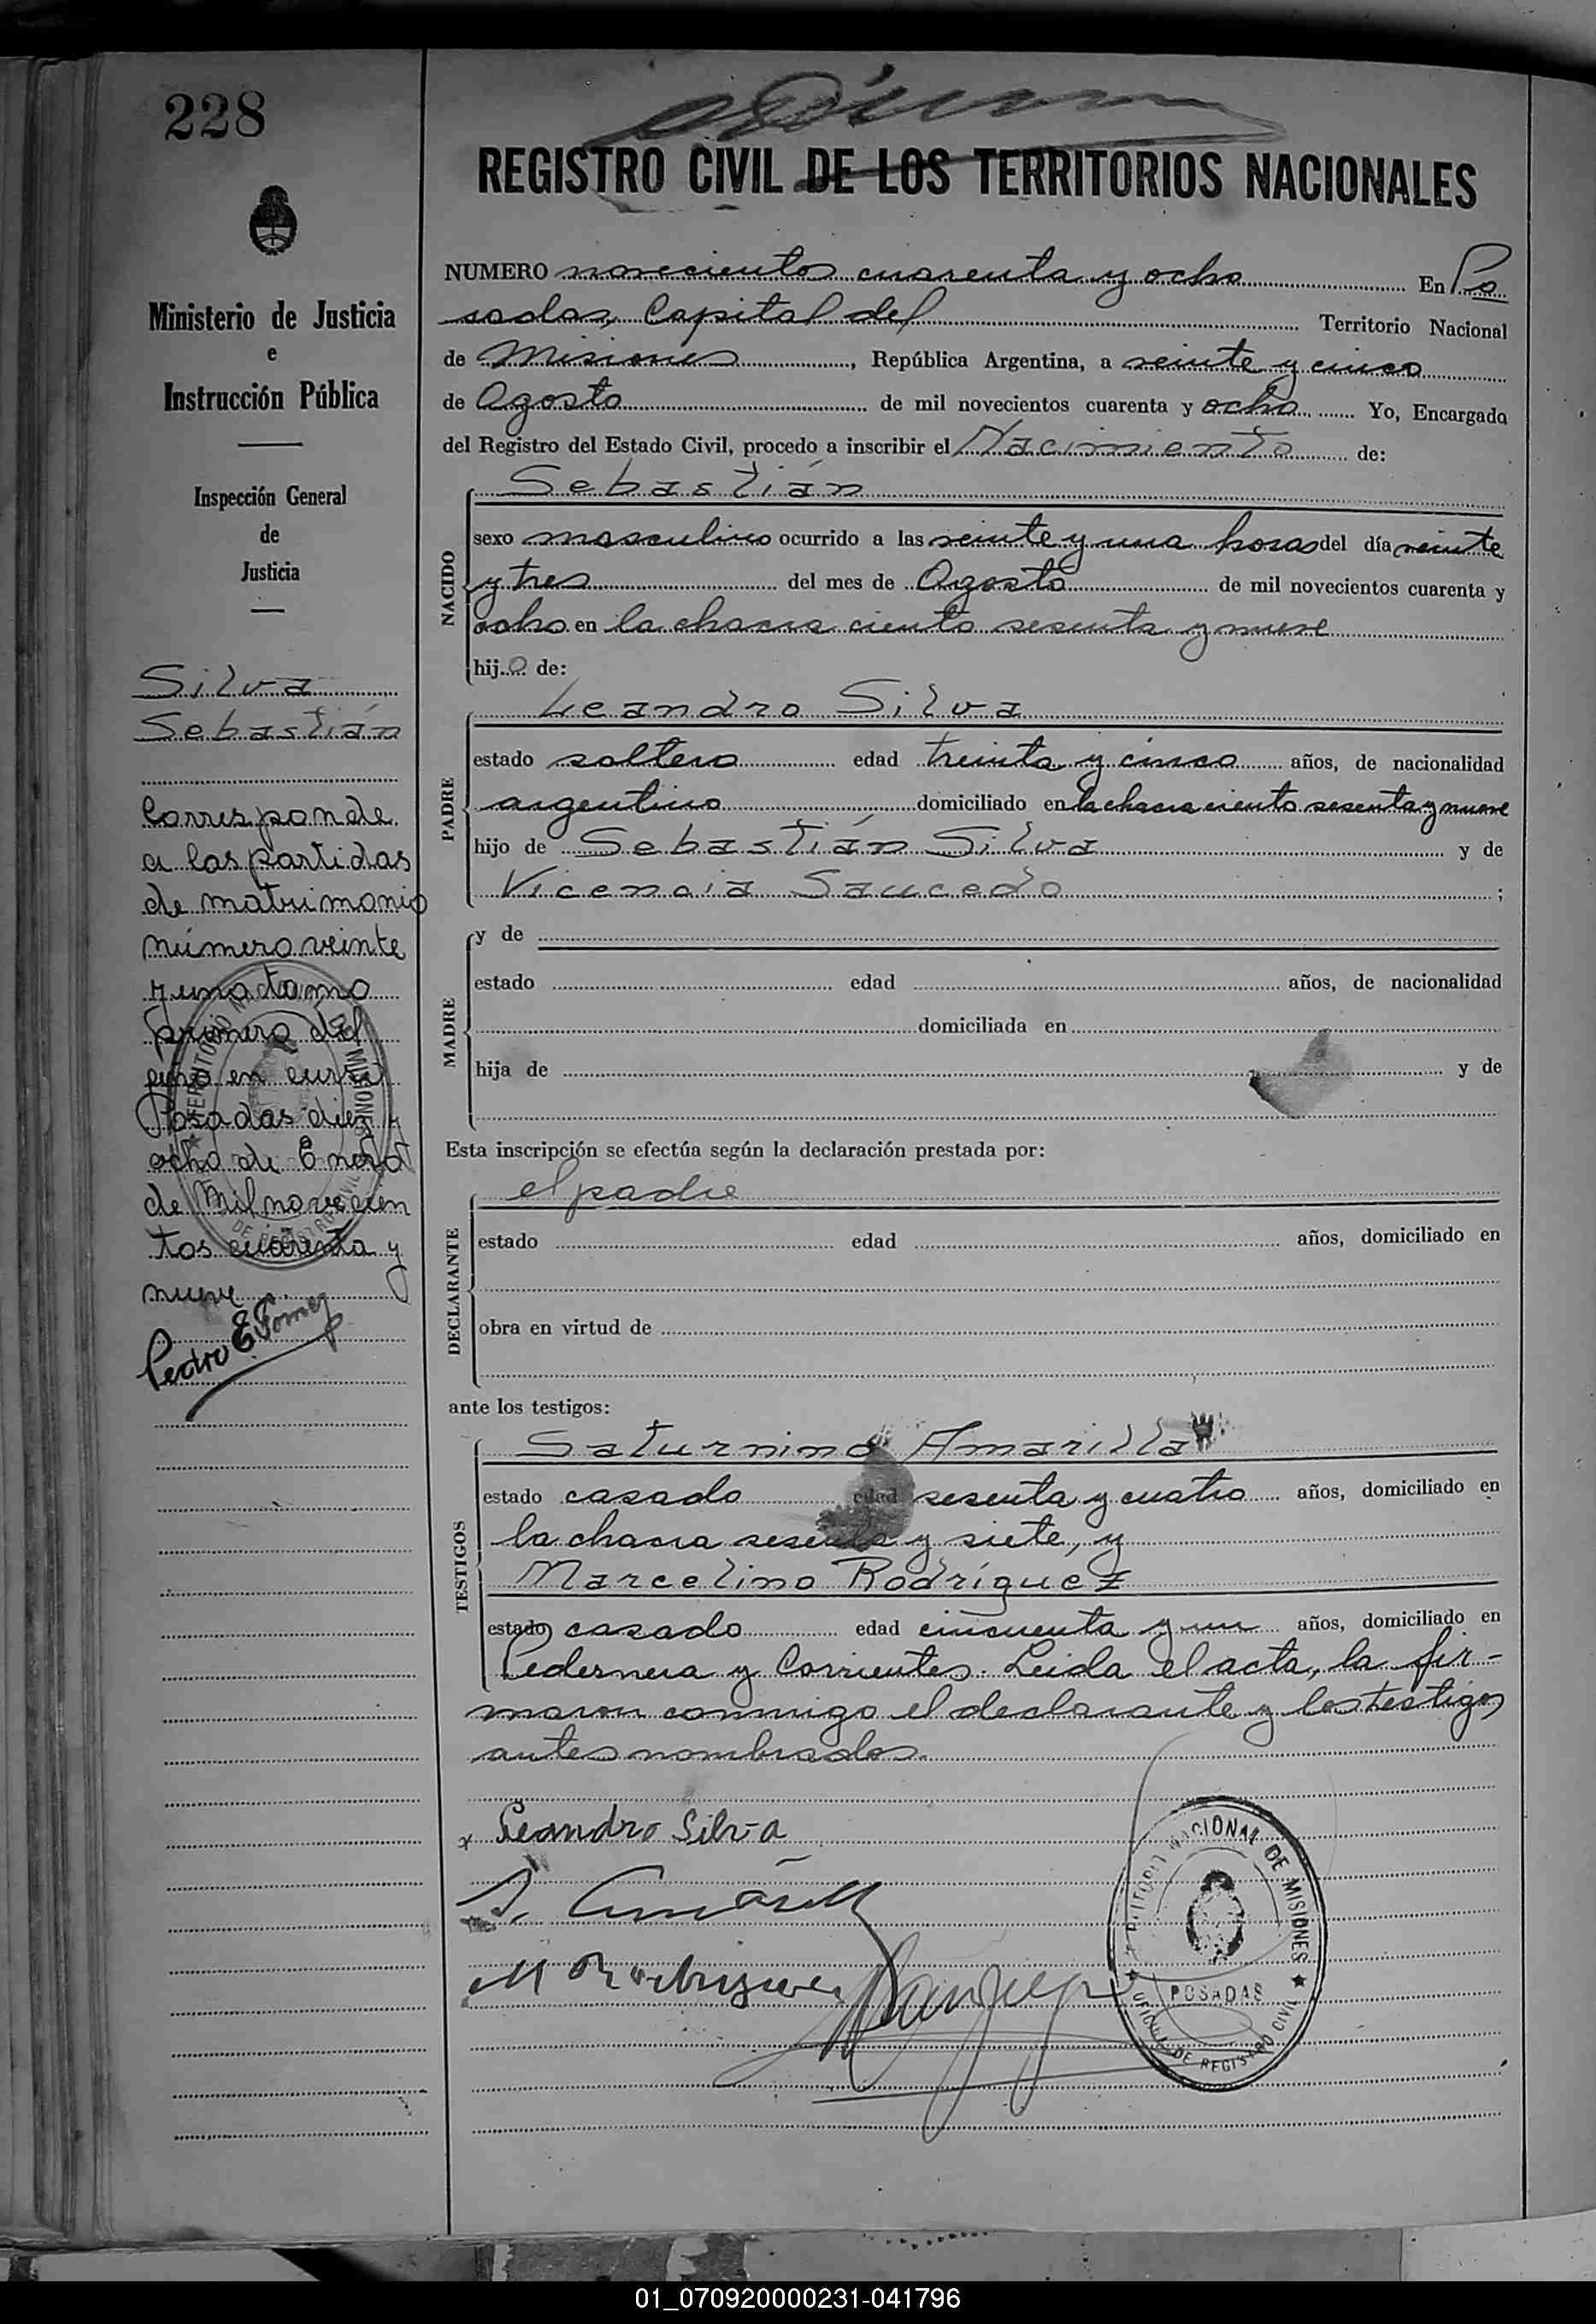 228
REGISTRO CIVIL DE LOS TERRITORIOS NACIONALES
Ministerio de Justicia
e
Instrucción Pública
Inspección General
de
Justicia
Silva
Sebastián
Corresponde
a las partidas
de matrimonio
número veinte
y uno tomo
primero del
año en curso
Posadas diez y
ocho de Enero
de Mil novecien
tos cuarenta y
nueve
Pedro E Gomez
NUMERO novecientos cuarenta y ocho En Po
sadas, Capital del Territorio Nacional
de Misiones, República Argentina, a veinte y cinco
de Agosto de mil novecientos cuarenta y ocho Yo, Encargado
del Registro del Estado Civil, procedo a inscribir el Nacimiento de:
NACIDO
Sebastián
sexo masculino ocurrido a las veinte y una horas del día veinte
y tres del mes de Agosto de mil novecientos cuarenta y
ocho en la chacra ciento sesenta y nueve
hijo de:
PADRE
Leandro Silva
estado soltero edad treinta y cinco años, de nacionalidad
argentino domiciliado en la chacra ciento sesenta y nueve
hijo de Sebastián Silva y de
Vicencia Saucedo ;
MADRE
y de
estado edad años, de nacionalidad
domiciliada en
hija de y de
Esta inscripción se efectúa según la declaración prestada por:
DECLARANTE
el padre
estado edad años, domiciliado en
obra en virtud de
ante los testigos:
TESTIGOS
Saturnino Amarilla
estado casado edad sesenta y cuatro años, domiciliado en
la chacra sesenta y siete, y
Marcelino Rodríguez
estado casado edad cincuenta y un años, domiciliado en
Pedernera y Corrientes. Leida el acta, la fir-
maron conmigo el declarante y los testigos
antes nombrados.
x Leandro Silva
S. Amarilla
M Rodriguez
TERRITORIO NACIONAL DE MISIONES
POSADAS
OFICINA DE REGISTRO CIVIL
01_070920000231-041796